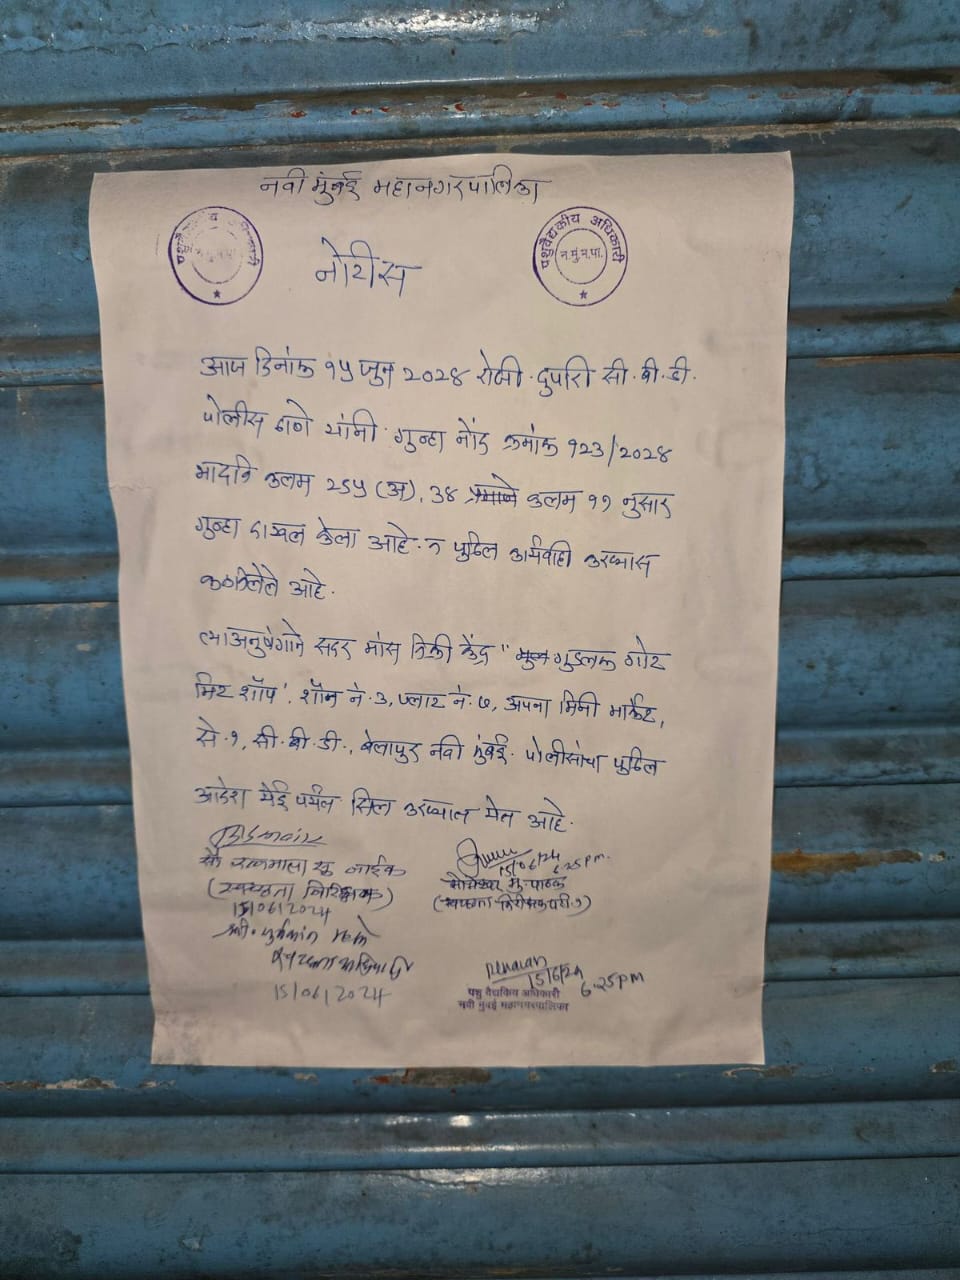 नवी मुंबई महानगरपालिका
पशुवैद्यकीय अधिकारी
न.मुं.म.पा.
पशुवैद्यकीय अधिकारी
न.मुं.म.पा.
नोटीस
आज दिनांक १५ जुन २०२४ रोजी दुपारी सी.बी.डी.
पोलीस ठाणे यांनी गुन्हा नोंद क्रमांक १२३/२०२४
भादवि कलम २९५ (अ), ३४ प्रमाणे कलम ११ नुसार
गुन्हा दाखल केला आहे. व पुढिल कार्यवाही करण्यास
आहे.
त्याअनुषंगाने सदर मांस विक्री केंद्र " गुडलक गोट
मिट शॉप", शॉप नं. ३, प्लाट नं. ७, अपना मिनी मार्केट,
से. १, सी.बी.डी., बेलापुर नवी मुंबई. पोलीसांचा पुढिल
आदेश येई पर्यंत सिल करण्यात येत आहे.
सौ रत्नमाला सु नाईक
(स्वच्छता निरिक्षक)
15/06/2024
15/06/2024
15/06/24
6.25 pm.
पाठक
(स्वच्छता निरीक्षक
15/6/24
6.25 pm
पशु वैद्यकिय अधिकारी
नवी मुंबई महानगरपालिका